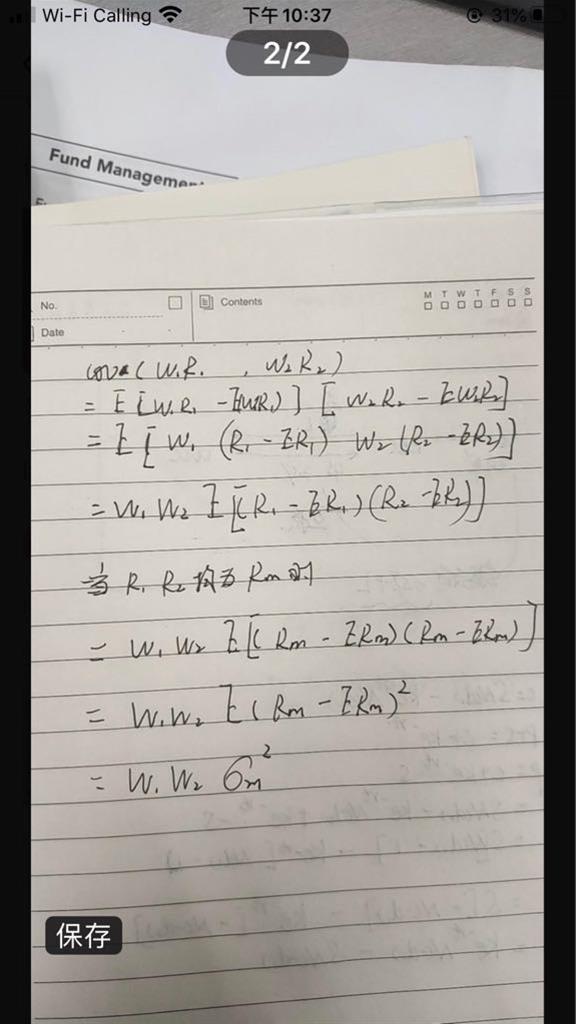 Wi-Fi Calling 下午10:37 31%
2/2
Fund Managemen
No.
Contents
M T W T F S S
Date
cova(W₁R₁ , W₂R₂)
= E[W₁R₁ - EW₁R₁)][W₂R₂ - EW₂R₂]
= E[W₁(R₁ - ER₁) W₂(R₂ - ER₂)]
= W₁W₂ E[(R₁ - ER₁)(R₂ - ER₂)]
当 R₁ R₂ 均为 Rm时
= W₁W₂ E[(Rm - ERm)(Rm - ERm)]
= W₁W₂ E(Rm - ERm)²
= W₁W₂ σm²
保存